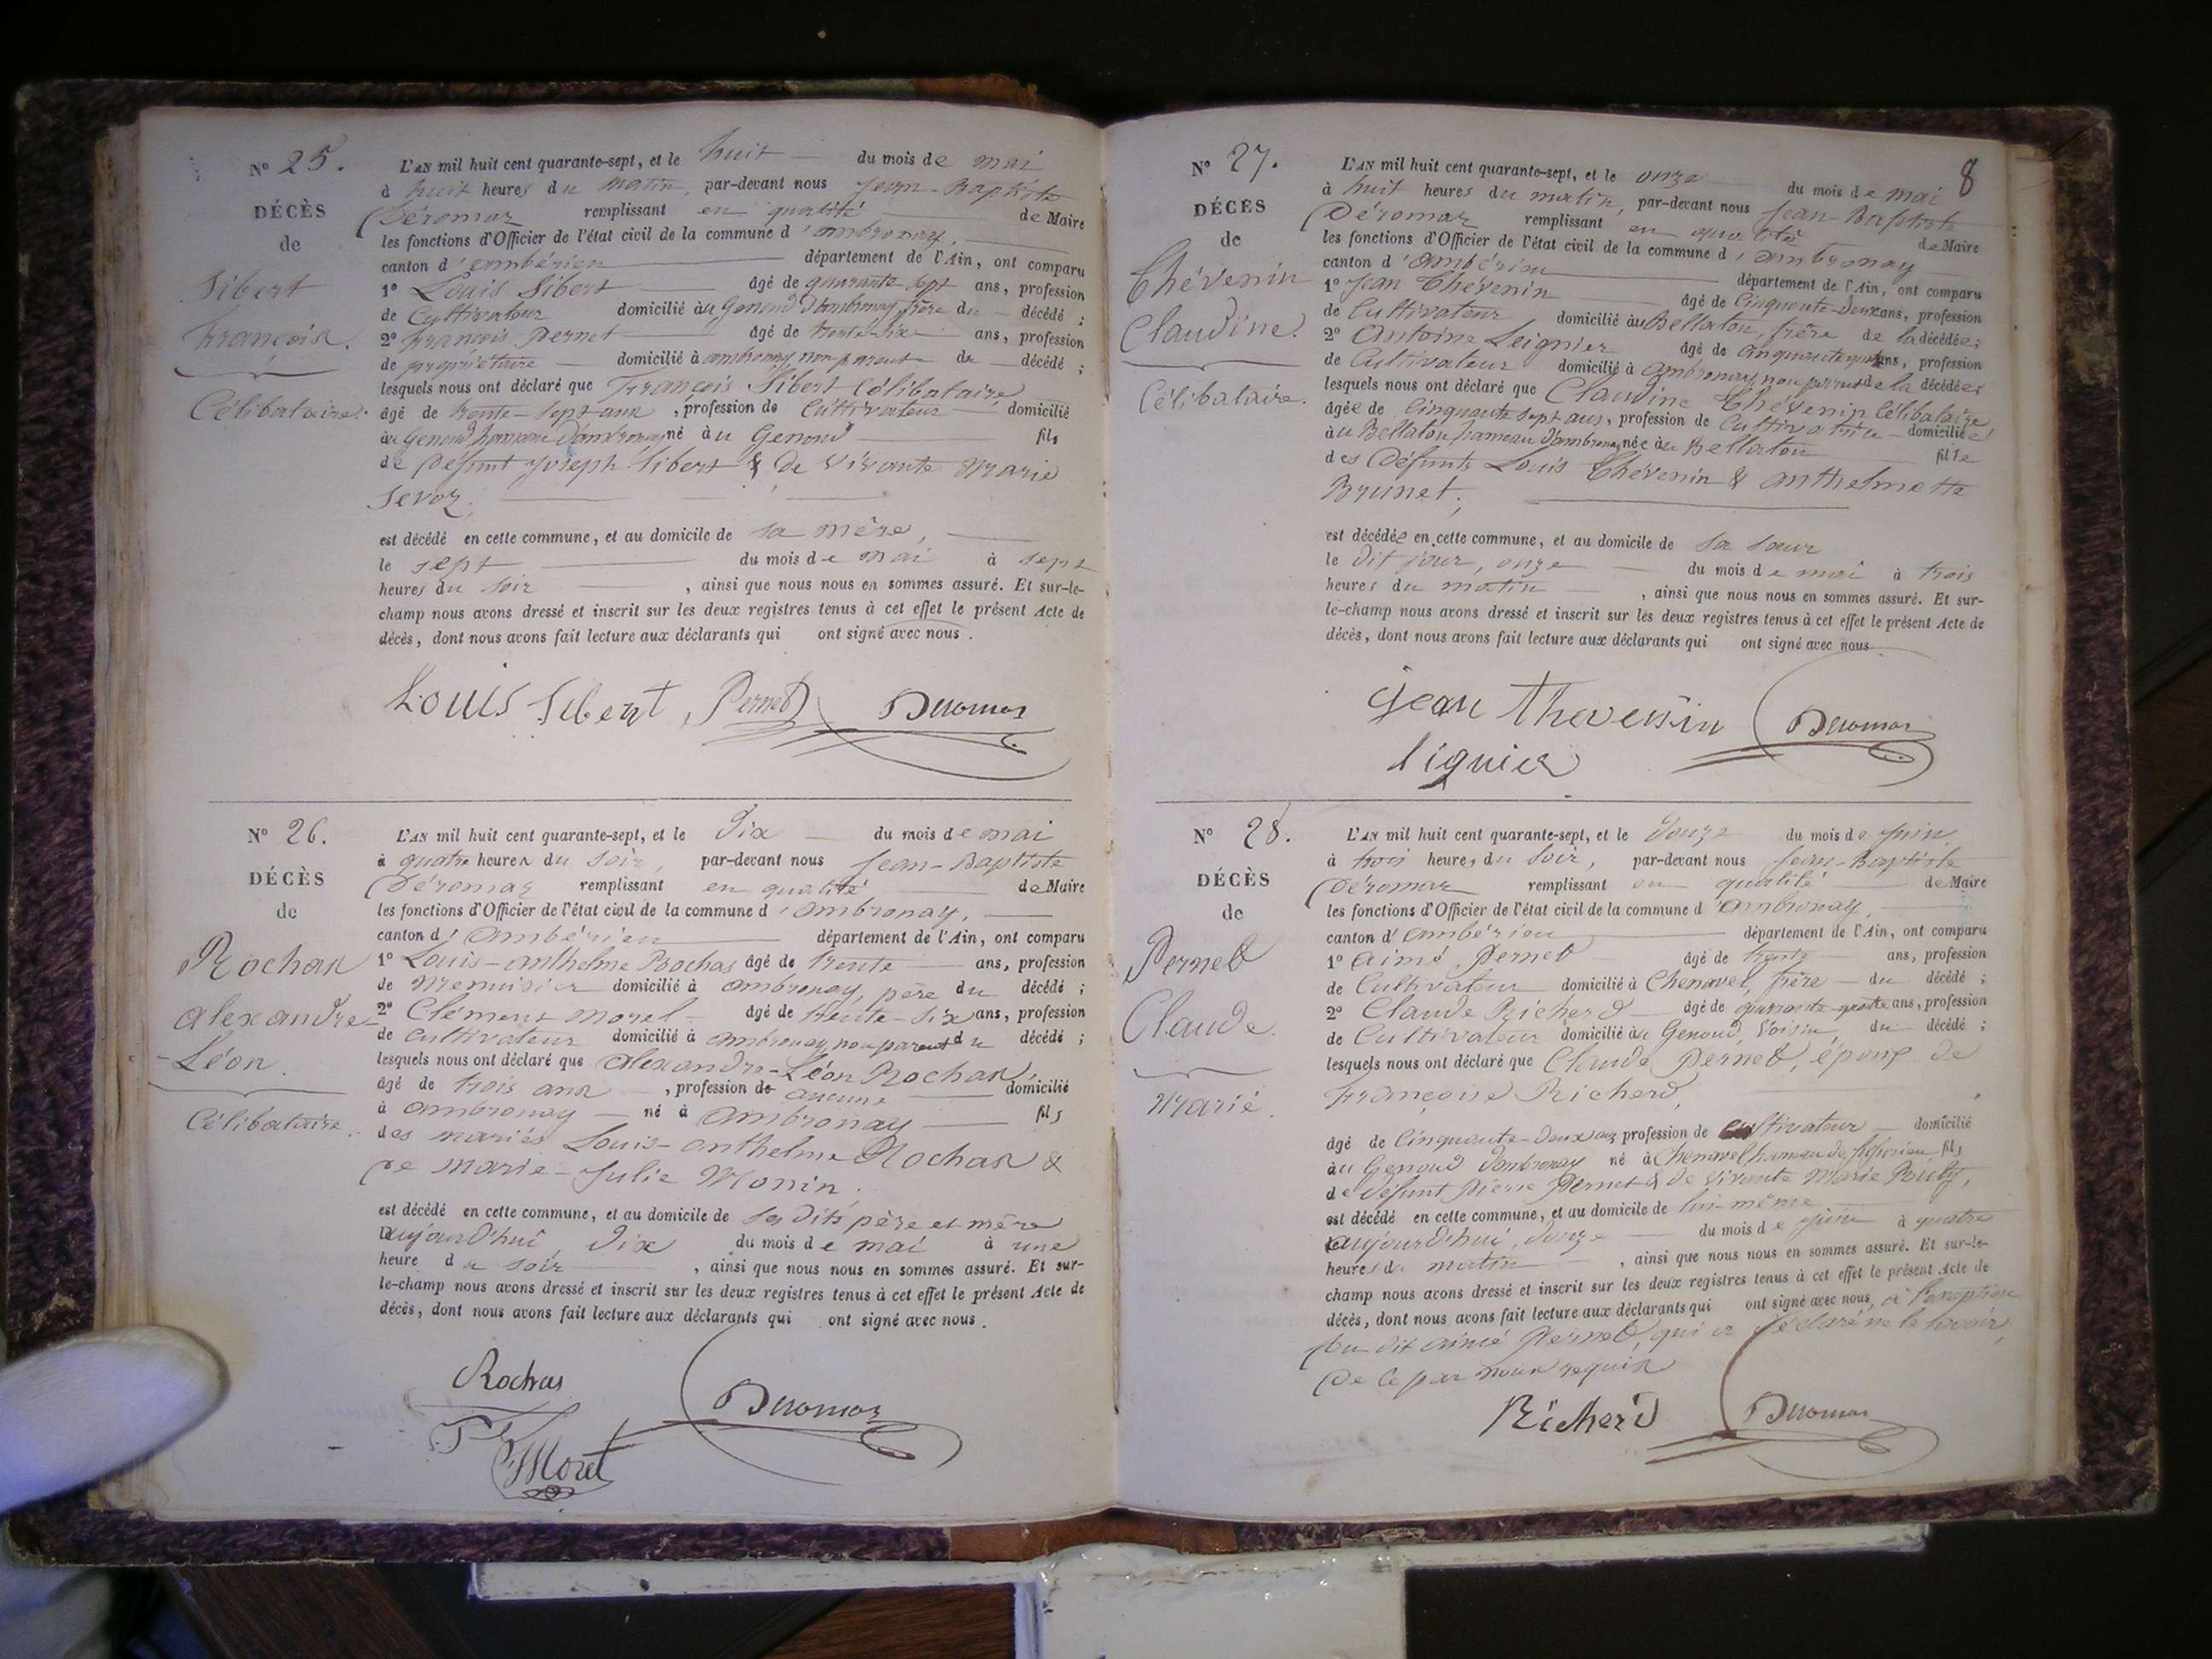 N° 25.
DÉCÈS
de
Sibert
François.
Célibataire.
L'AN mil huit cent quarante-sept, et le huit du mois de mai
à huit heures du matin, par-devant nous Jean-Baptiste
Déromas remplissant en qualité de Maire
les fonctions d'Officier de l'état civil de la commune d'ambronay,
canton d'ambérieu département de l'Ain, ont comparu
1° Louis Sibert âgé de quarante sept ans, profession
de Cultivateur domicilié au Genoud d'ambronay frère du décédé ;
2° François Pernet âgé de trente-six ans, profession
de propriétaire domicilié à ambronay non parent du décédé ;
lesquels nous ont déclaré que François Sibert Célibataire
âgé de trente-sept ans, profession de Cultivateur domicilié
au Genoud hameau d'ambronay né au Genoud fils
de Défunt Joseph Sibert & de vivante Marie
Sevoz,
est décédé en cette commune, et au domicile de sa mère,
le sept du mois de mai à sept
heures du soir, ainsi que nous nous en sommes assuré. Et sur-le-
champ nous avons dressé et inscrit sur les deux registres tenus à cet effet le présent Acte de
décès, dont nous avons fait lecture aux déclarants qui ont signé avec nous.
Louis Sibert Pernet Deromas
N° 26.
DÉCÈS
de
Rochas
alexandre
-Léon.
Célibataire.
L'AN mil huit cent quarante-sept, et le Dix du mois de mai
à quatre heures du soir, par-devant nous Jean-Baptiste
Déromas remplissant en qualité de Maire
les fonctions d'Officier de l'état civil de la commune d'ambronay,
canton d'ambérieu département de l'Ain, ont comparu
1° Louis-anthelme Rochas âgé de trente ans, profession
de Menuisier domicilié à ambronay, père du décédé ;
2° Clément Morel âgé de trente-six ans, profession
de cultivateur domicilié à ambronay, non parent du décédé ;
lesquels nous ont déclaré que alexandre-Léon Rochas,
âgé de trois ans, profession de aucune domicilié
à ambronay né à ambronay fils
des mariés Louis-anthelme Rochas &
De marie-Julie Monin ;
est décédé en cette commune, et au domicile de ses dits père et mère
aujourd'hui Dix du mois de mai à une
heure du soir, ainsi que nous nous en sommes assuré. Et sur-
le-champ nous avons dressé et inscrit sur les deux registres tenus à cet effet le présent Acte de
décès, dont nous avons fait lecture aux déclarants qui ont signé avec nous.
Rochas Deromas
Morel
8
N° 27.
DÉCÈS
de
Thévenin
Claudine.
Célibataire.
L'AN mil huit cent quarante-sept, et le onze du mois de mai
à huit heures du matin, par-devant nous Jean-Baptiste
Déromas remplissant en qualité de Maire
les fonctions d'Officier de l'état civil de la commune d'ambronay
canton d'ambérieu département de l'Ain, ont comparu
1° Jean Thévenin âgé de Cinquante-Deux ans, profession
de Cultivateur domicilié au Bellaton, frère de la décédée ;
2° Antoine Leignier âgé de Cinquante ans, profession
de Cultivateur domicilié à ambronay, non parent de la décédée ;
lesquels nous ont déclaré que Claudine Thévenin Célibataire,
âgée de Cinquante sept ans, profession de Cultivatrice domiciliée
au Bellaton hameau d'ambronay née au Bellaton fille
des Défunts Louis Thévenin & anthelmette
Brunet ;
est décédée en cette commune, et au domicile de sa sœur
le dit jour, onze du mois de mai à trois
heures du matin, ainsi que nous nous en sommes assuré. Et sur-
le-champ nous avons dressé et inscrit sur les deux registres tenus à cet effet le présent Acte de
décès, dont nous avons fait lecture aux déclarants qui ont signé avec nous
jean thevensin Deromas
liguier
N° 28.
DÉCÈS
de
Pernet
Claude.
Marié.
L'AN mil huit cent quarante-sept, et le Douze du mois de Juin
à trois heures du soir, par-devant nous Jean-Baptiste
Déromas remplissant en qualité de Maire
les fonctions d'Officier de l'état civil de la commune d'ambronay,
canton d'ambérieu département de l'Ain, ont comparu
1° aimé Pernet âgé de trente ans, profession
de Cultivateur domicilié à Chenavel, frère du décédé ;
2° Claude Richerd âgé de quarante-quatre ans, profession
de Cultivateur domicilié au Genoud, Voisin, du décédé ;
lesquels nous ont déclaré que Claude Pernet, époux de
Françoise Richerd,
âgé de Cinquante-Deux ans profession de Cultivateur domicilié
au Genoud d'ambronay né à Chenavel hameau de fils
de Défunt Pierre Pernet & de Vivante Marie
est décédé en cette commune, et au domicile de lui-même
aujourd'hui, Douze du mois de Juin à quatre
heures du matin, ainsi que nous nous en sommes assuré. Et sur-le-
champ nous avons dressé et inscrit sur les deux registres tenus à cet effet le présent Acte de
décès, dont nous avons fait lecture aux déclarants qui ont signé avec nous, à l'exception
Du dit aimé Pernet, qui a Déclaré ne le savoir,
De ce par nous requis
Richerd Deromas